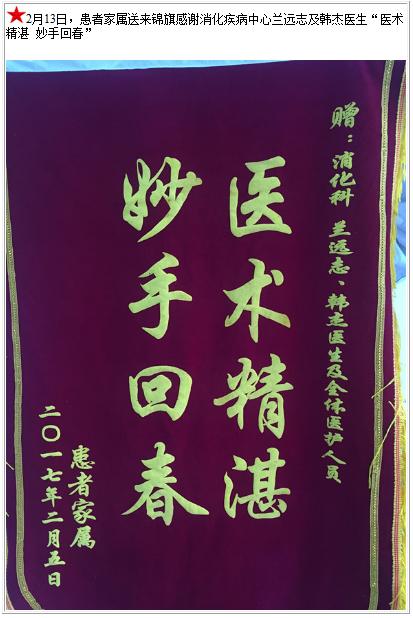 ★2月13日，患者家属送来锦旗感谢消化疾病中心兰远志及韩杰医生“医术
精湛 妙手回春”
赠：消化科 兰远志、韩杰医生及全体医护人员
医术精湛
妙手回春
患者家属
二〇一七年二月五日